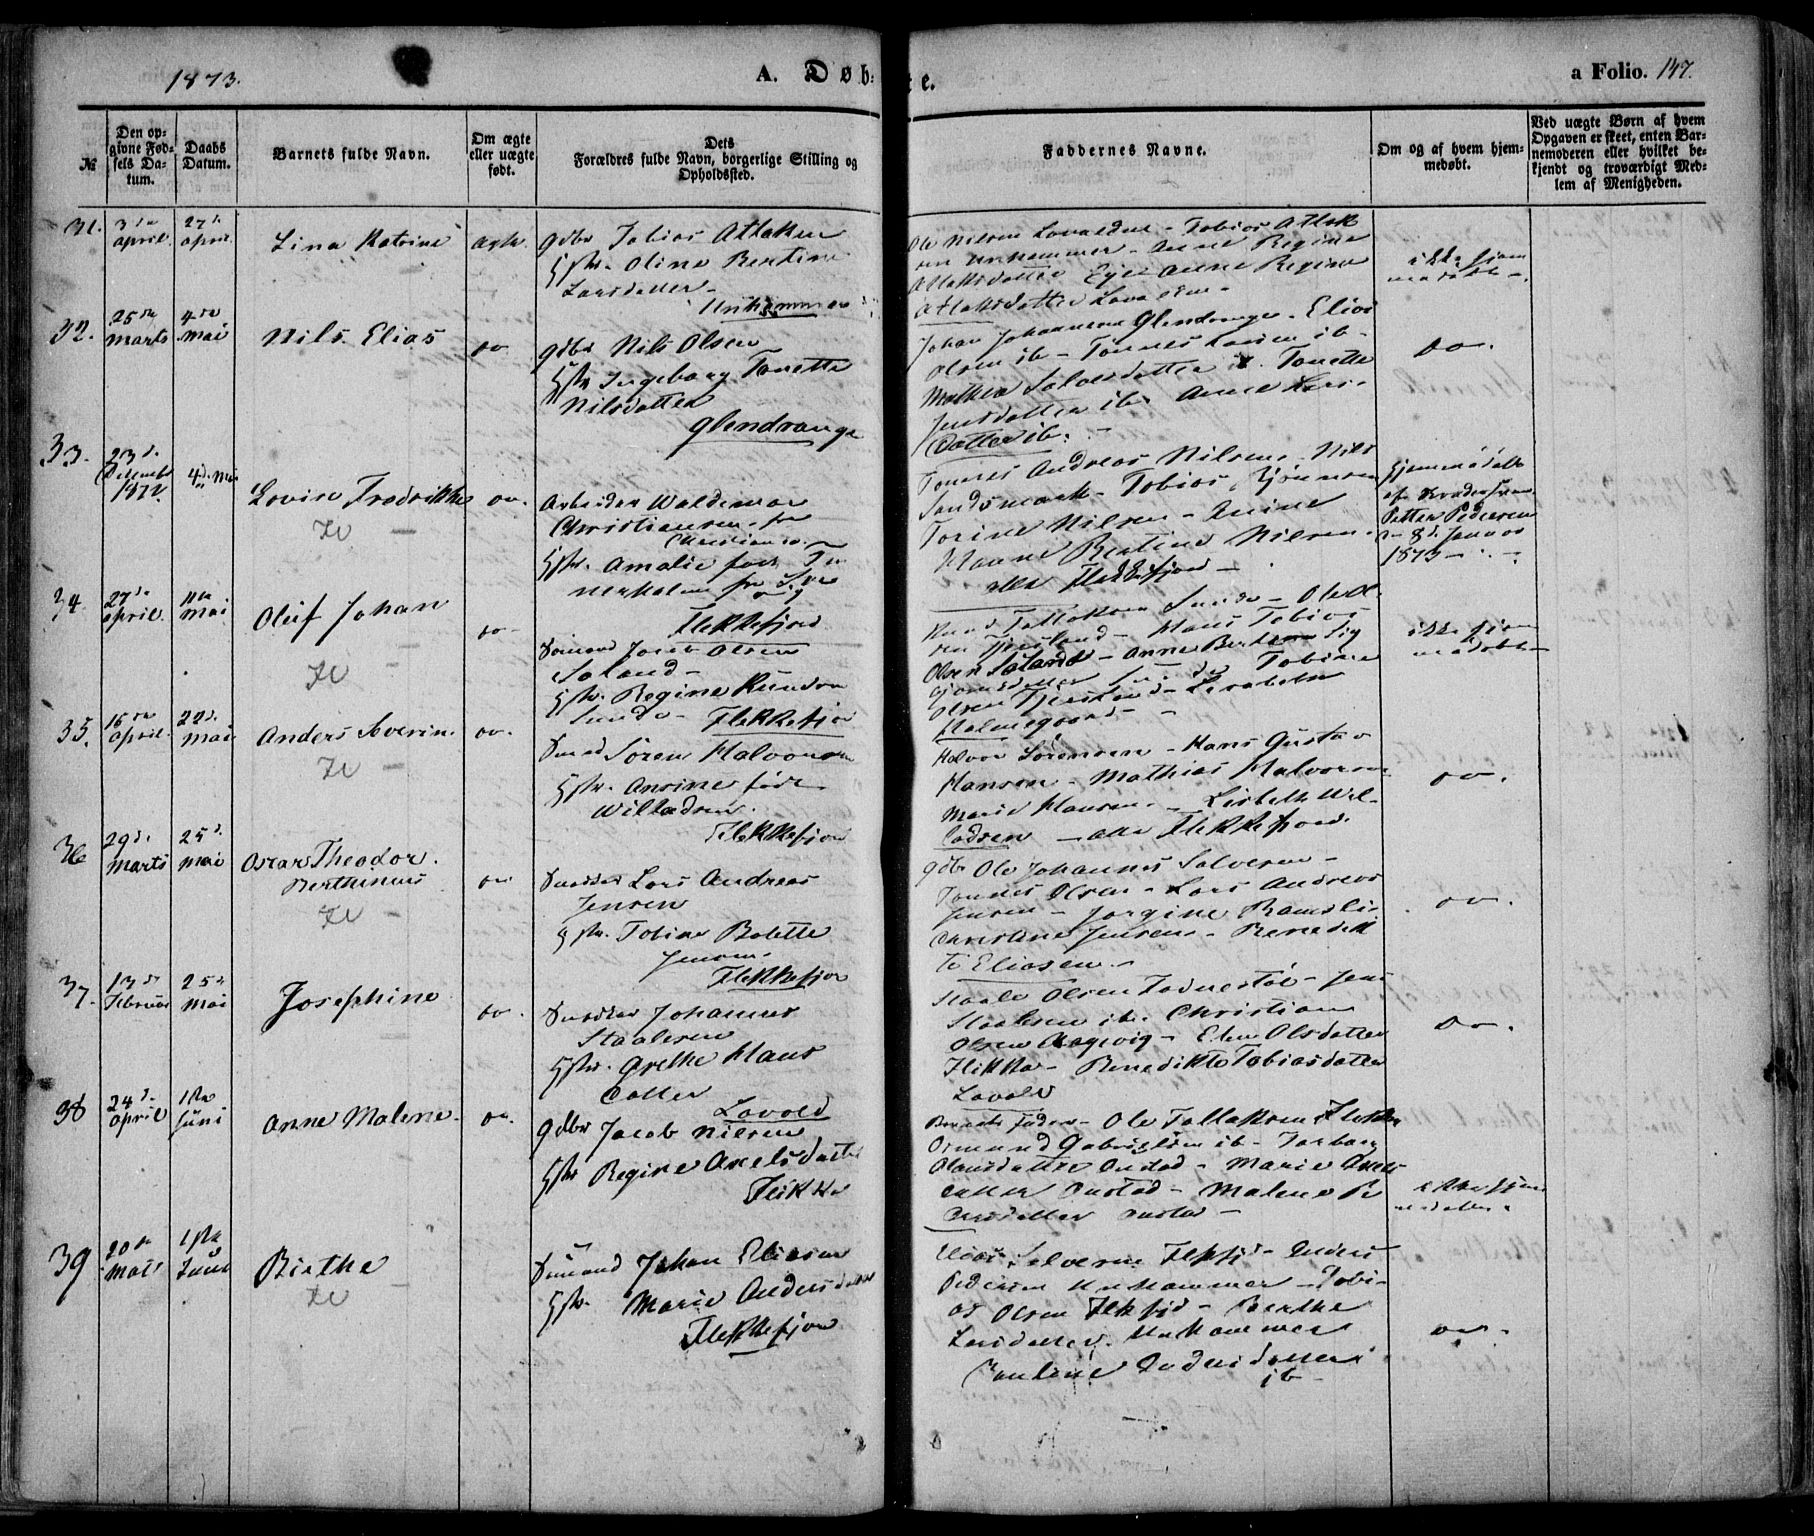 1873.
A. Døbte.
a Folio. 147.
№
Den op-
givne Fød-
sels Da-
tum.
Daabs
Datum.
Barnets fulde Navn.
Om ægte
eller uægte
født.
Dets
Forældres fulde Navn, borgerlige Stilling og
Opholdssted.
Faddernes Navne.
Om og af hvem hjem-
medøbt.
Ved uægte Børn af hvem
Opgaven er skeet, enten Bar-
nemoderen eller hvilket be-
kjendt og troværdigt Med-
lem af Menigheden.
31.
3die
april
27d.
april
Lina Katrine
ægte
gdbr Tobias Atlaksen
Hstr. Oline Bertine
Larsdatter
Unhammer
Ole Nilsen
Tobias Atlak
sen Unhammer - Anne Regine
Atlaksdatter Eye Anne Regine
Atlaksdatter
ikke hjem
medøbt
32.
25de
marts
4de
mai
Nils Elias
do
gdbr Nils Olsen
Hstr Ingeborg Tonette
Nilsdatter
Glendrange
Johan Johannesen Glendrange. Elias
Olsen ib - Tønnes Larsen ib -
Mathea Salvesdatter ib. Tonette
Jensdatter ib. Anne Lars-
datter ib.
do.
33.
23d.
Decembr
1872
4d. Mai
Lovise Fredrikke
do.
Arbeider Waldemar
Christiansen fra
Christiansa
Hstr. Amalie født
Flekkefjord
Tønnes Andreas Nilsen, Nils
Sandsmark - Tobias Bjørnsen
Torine Nilsen - Anine
Hanne Bertine Nilsen
alle Flekkefjord -
Hjemmedøbt
af
Petter Pedersen
8d. Januar
1873
34
27de
april
11te
mai
Oluf Johan
do
Sømand Jacob Olsen
Soland -
Hstr. Regine Knudsen
Sunde - Flekkefjord
Knud Tollaksen Sunde - Ole Ol
sen Tjersland - Hans Tobias
Olsen Soland - Anne
Sunde Tobine
Olsen Tjersland - Lisabeth
ikke hjem
medøbt
35.
16de
april
22d.
mai
Anders Severin
do.
Søren Halvorsen
Hstr. Ansine født
Willadsen.
Flekkefjord
Halvor Sørensen - Hans Gustav
Hansen - Mathias Halvorsen
Marie Hansen - Lisbeth Wil-
ladsen - alle Flekkefjord.
do.
36
29d.
marts
25d.
mai
Oscar Theodor
Berthinius
do
Snedker Lars Andreas
Jensen
Hstr. Tobine Bolette
Jensen.
Flekkefjord
gdbr Ole Johannes Salvesen -
Tønnes Olsen - Lars Andreas
Jensen - Jorgine Ramsli
Christine Jensen - Benedik
te Eliasen -
do.
37.
13de
Februar
25d.
Mai
Josephine
do.
Snedker Johannes
Staalesen
Hstr. Grethe Hans
datter
Lavold
Staale Olsen
Staalesen ib. Christian
Olsen - Elen Olsdatter
Flikka - Benedikte Tobiasdatter
Lavold
do.
38
24d.
april
1ste
Juni
Anne Malene
do.
gdbr Jacob Nilsen
Hstr Regine Axelsdatter
Flikka
Barnets Fader - Ole Tollaksen Flikka
Osmund Gabrielsen ib - Torborg
Olausdatter - Marie Axels
datter - Malene
ikke hjem
medøbt
39
20de
Mars
1ste
Juni
Birthe
Sømand Johan Eliasen
Hstr. Marie Andersdatter
Flekkefjord
Elias Salvesen Flekfjd - Anders
Pedersen Unhammer - Tobi-
as Olsen Flekfjd - Berthe
Larsdatter Unhammer
Pauline Andersdatter
ib -
do.